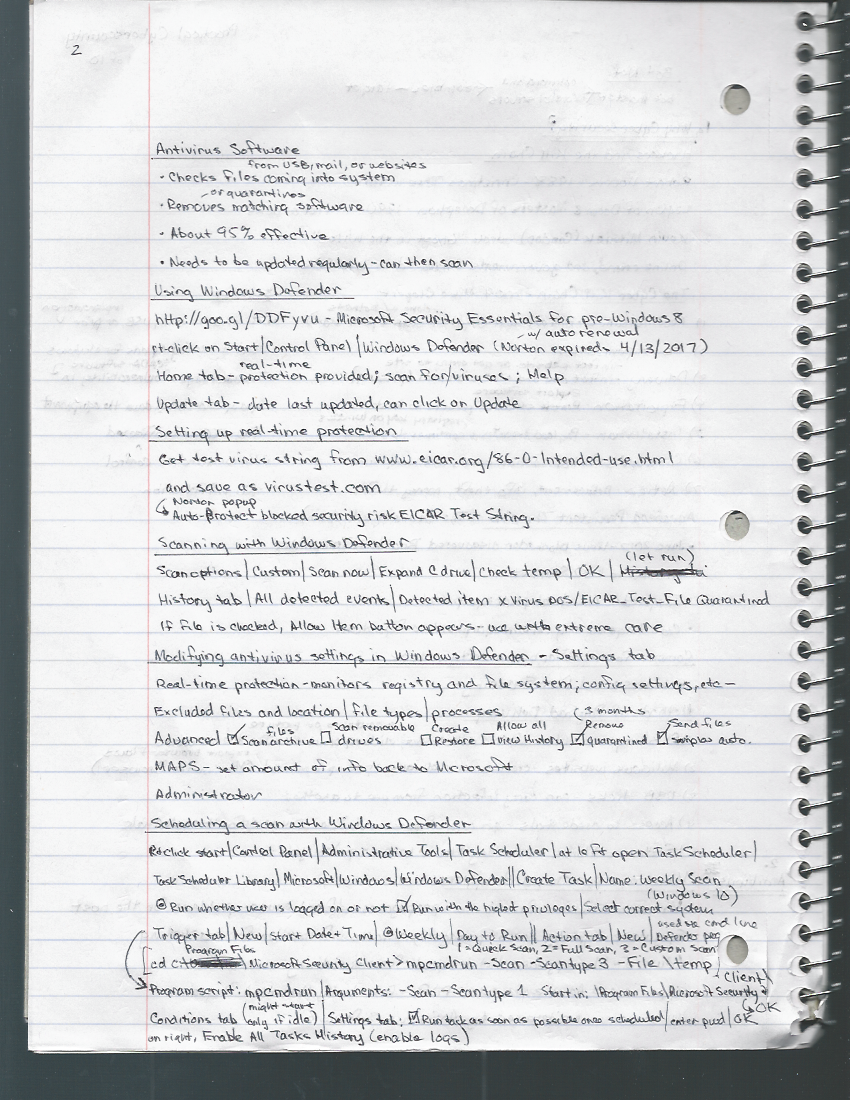 2
Antivirus Software
from USB, mail, or websites
• Checks files coming into system
or quarantines
• Removes matching software
• About 95% effective
• Needs to be updated regularly - can then scan
Using Windows Defender
http://goo.gl/DDFyvu - Microsoft Security Essentials for pre-Windows 8
w/ autorenewal
rt-click on Start/Control Panel/Windows Defender (Norton expireds 4/13/2017)
real-time
Home tab - protection provided; scan for/viruses; Help
Update tab - date last updated, can click on Update
Setting up real-time protection
Get test virus string from www.eicar.org/86-0-Intended-use.html
and save as virustest.com
Norton popup
Auto-Protect blocked security risk EICAR Test String.
Scanning with Windows Defender
(let run)
Scan options | Custom | Scan now | Expand C drive | Check temp | OK |
History tab | All detected events | Detected item x Virus DOS/EICAR_Test_File Quarantined
If file is checked, Allow Item button appears - use with extreme care
Modifying antivirus settings in Windows Defender - Settings tab
Real-time protection - monitors registry and file system; config settings, etc -
Excluded files and location | file types | processes
files Scan removable Create Allow all 3 months Remove Send files
Advanced ☑ Scan archive ☐ drives ☐ Restore ☐ view History ☑ quarantined ☑ samples auto.
MAPS - set amount of info back to Microsoft
Administrator
Scheduling a scan with Windows Defender
Rt-click start | Control Panel | Administrative Tools | Task Scheduler | at left open Task Scheduler |
Task Scheduler Library | Microsoft | Windows | Windows Defender || Create Task | Name: Weekly Scan
(Windows 10)
◉ Run whether user is logged on or not ☑ Run with the highest privileges | Select correct system
cmd line
Trigger tab | New | Start Date + Time | ◉ Weekly | Day to Run || Action tab | New | Defender
Program Files 1 = Quick Scan, 2 = Full Scan, 3 = Custom Scan
cd \Microsoft Security Client > mpcmdrun -Scan -Scantype 3 -File \temp
Client\
Program script: mpcmdrun | Arguments: -Scan -Scantype 1 Start in: \Program Files\Microsoft Security
OK
(might start
Conditions tab only if idle) | Settings tab: ☑ Run task as soon as possible once scheduled / enter pwd / OK
on right, Enable All Tasks History (enable logs)